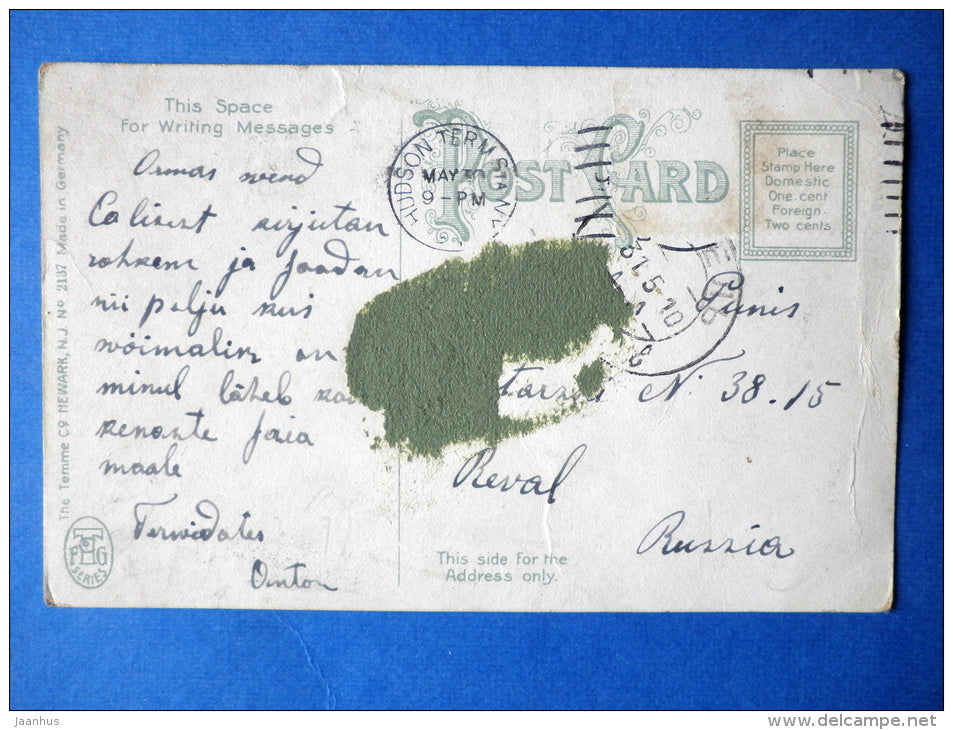 This Space
For Writing Messages
The Temme Co. NEWARK, N.J. No 2137 Made in Germany
POST CARD
Place
Stamp Here
Domestic
One cent
Foreign
Two cents
HUDSON TERM STA N.Y.
MAY 30
9-PM
31.5.10
Armas wend
kirjutan
rohkem ja saadan
nii palju kui
wöimalik on
minul läheb
maale
Terwidates
Anton
N. 38.15
Reval
Russia
This side for the
Address only.
SERIES
jaanhus
http://www.delcampe.net